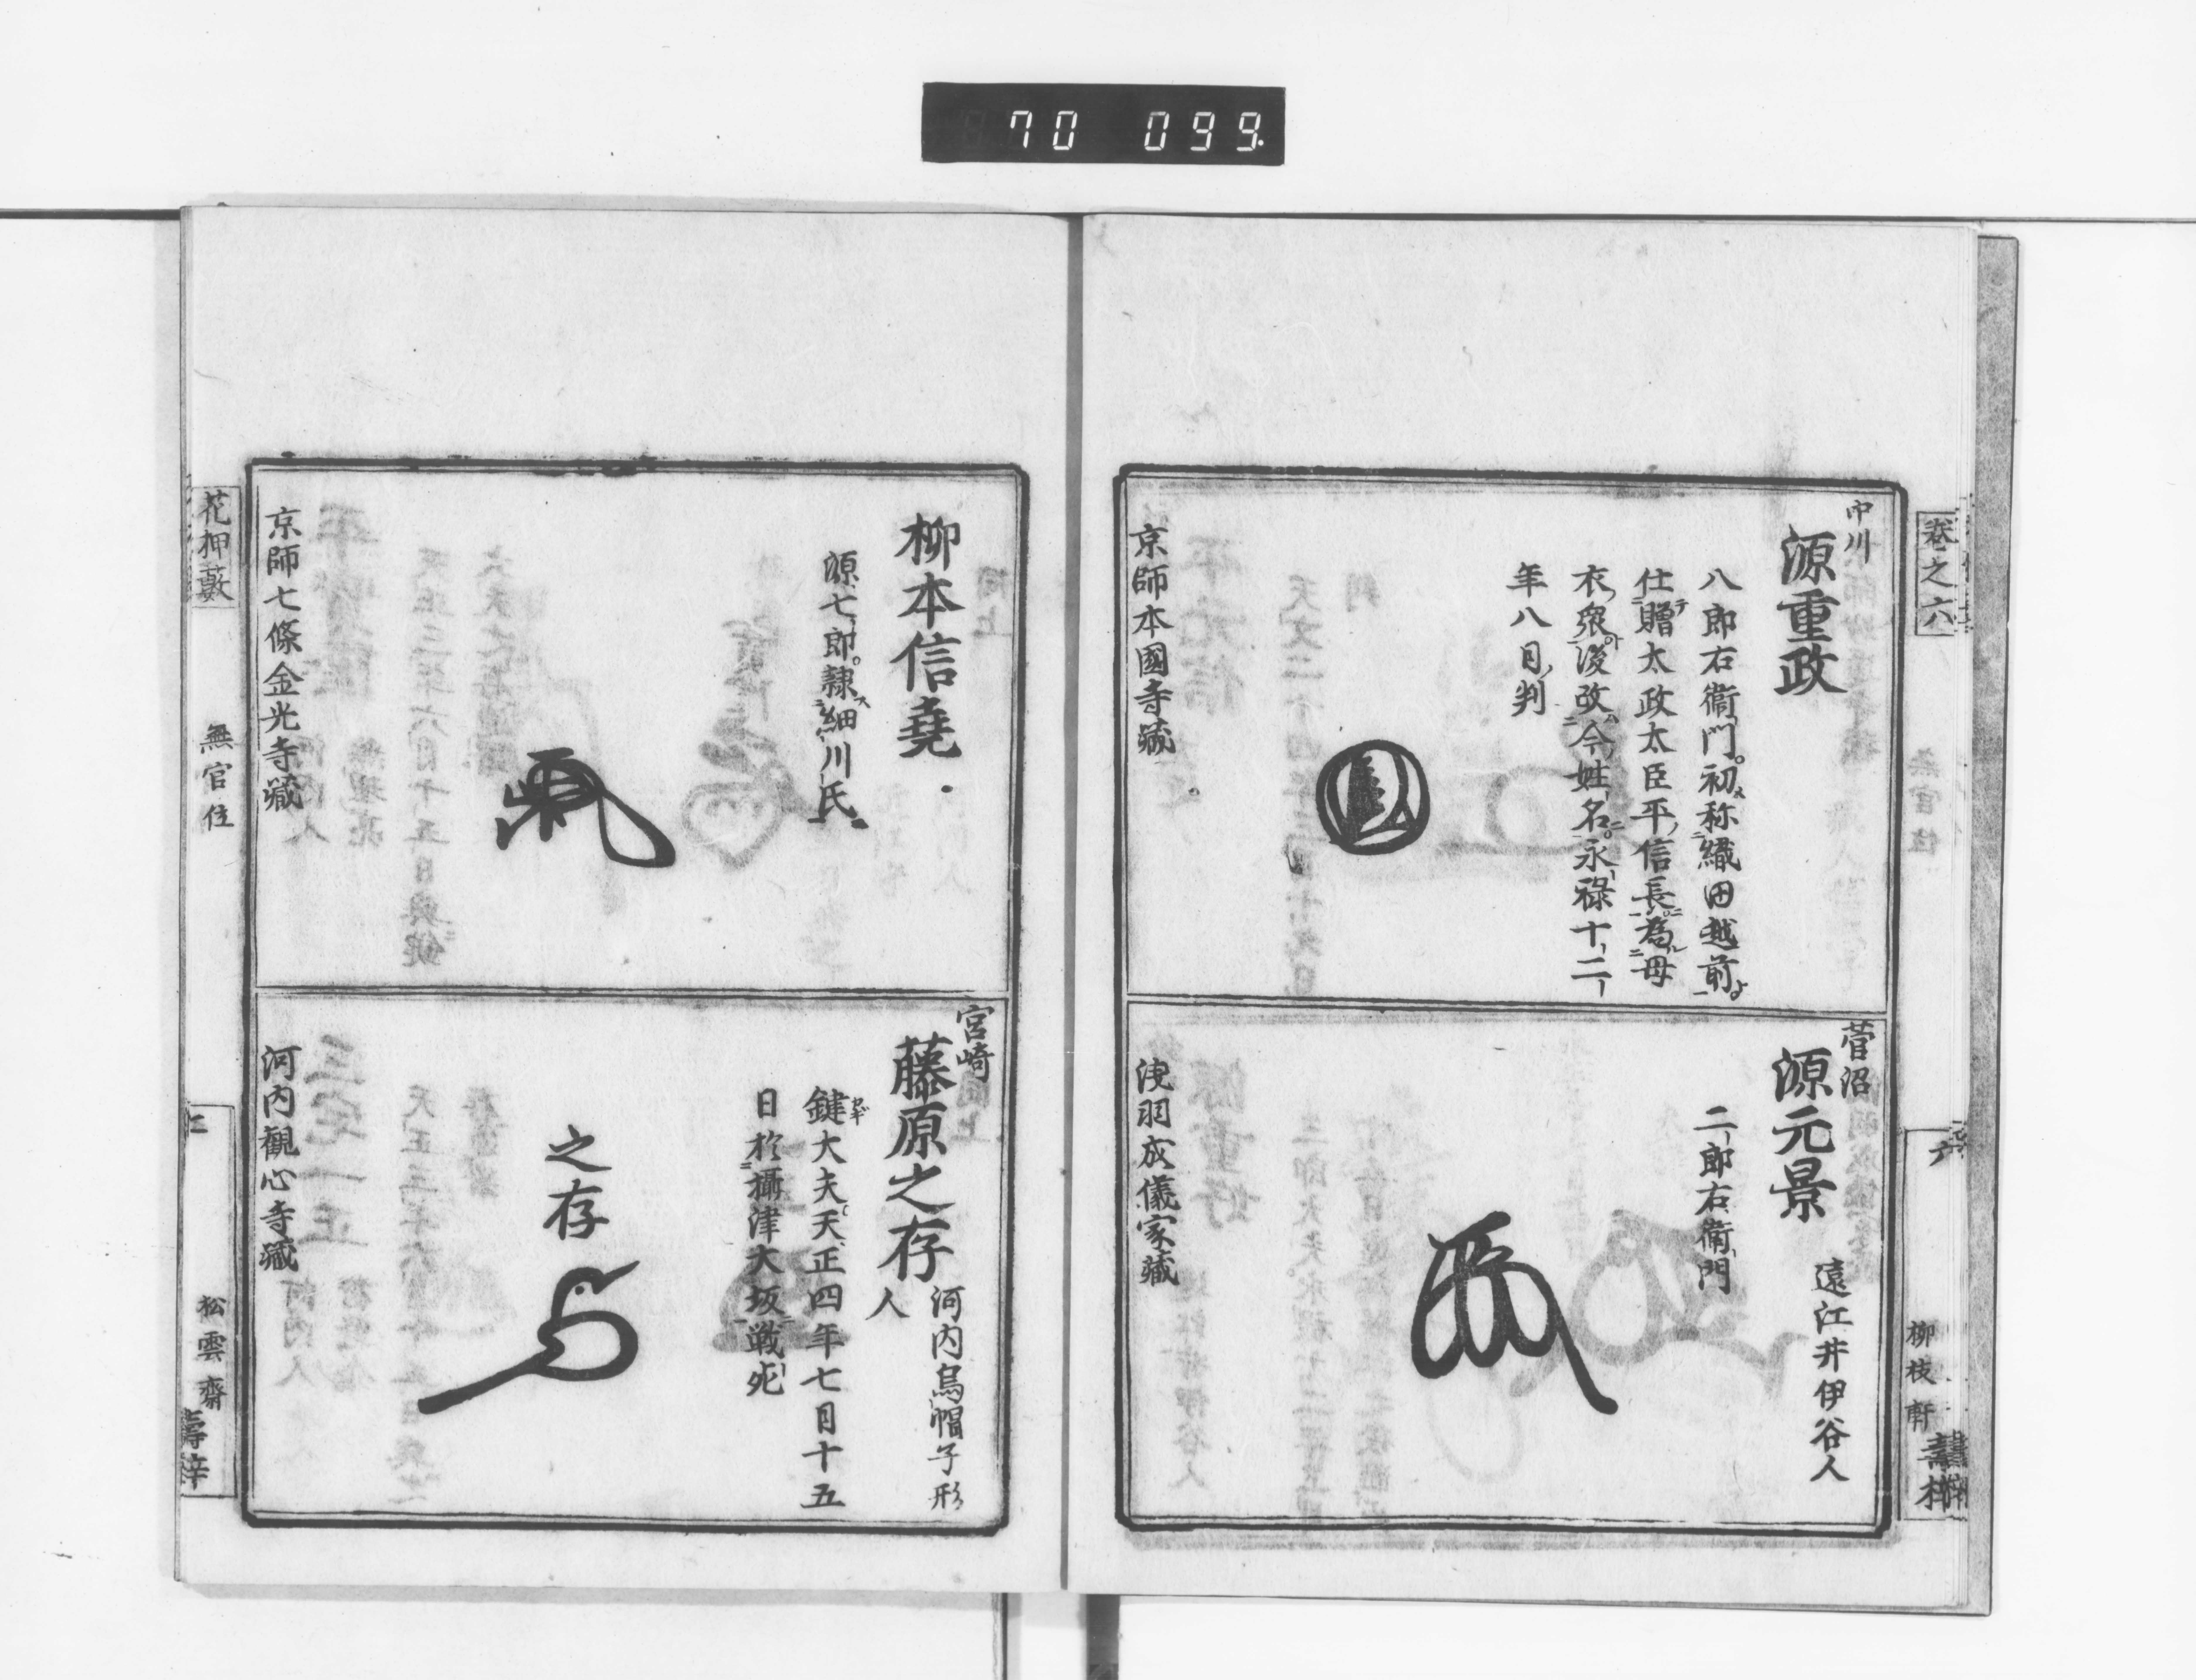 70 099.
卷之六
六
柳枝軒
中川
源重政
八郎右衞門初称織田越前
仕贈太政太臣平信長為母
衣衆後改今姓名永禄十二
年八月判
京師本國寺藏
菅沼
源元景
遠江井伊谷人
二郎右衞門
浅羽成儀家藏
柳本信堯
源七郎隷細川氏
京師七條金光寺藏
宮崎
藤原之存
河内烏帽子形
人
鍵大夫天正四年七月十五
日於攝津大坂戦死
之存
河内観心寺藏
花押藪
無官位
松雲齋
壽梓